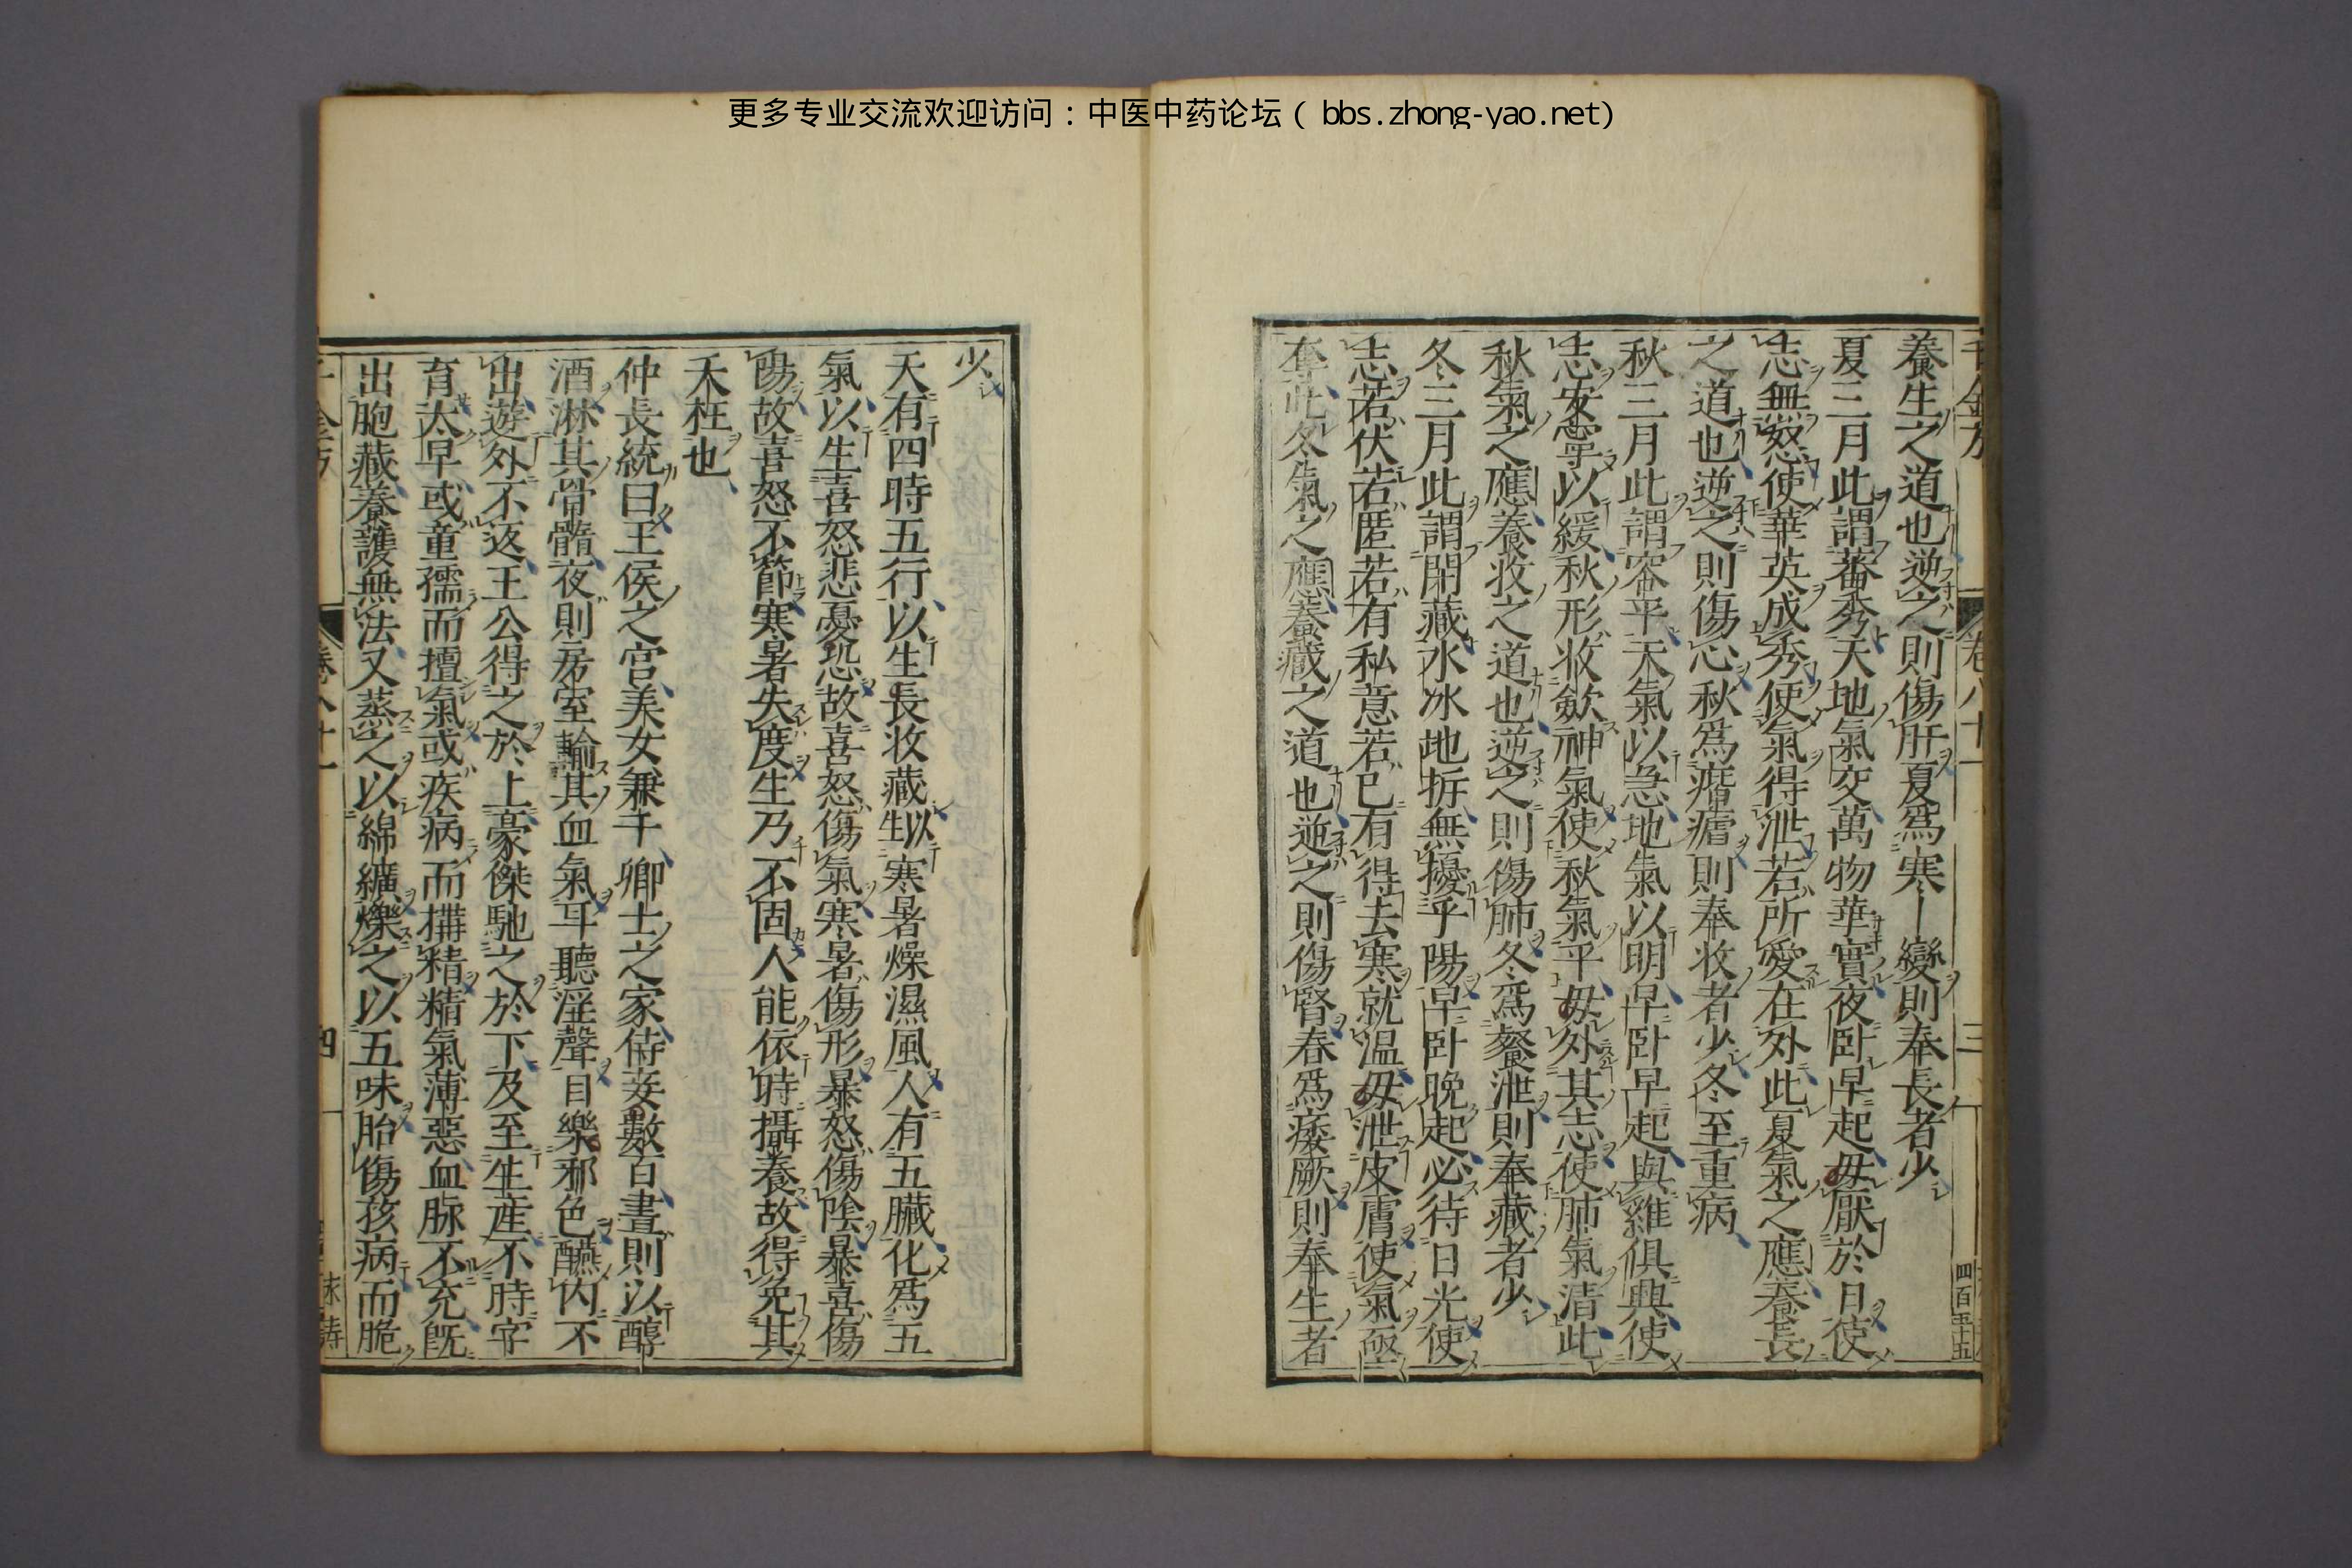 更多专业交流欢迎访问：中医中药论坛（ bbs.zhong-yao.net)
卷八十一
三
四百五十五
養生之道也逆之則傷肝夏爲寒變則奉長者少
夏三月此謂蕃秀天地氣交萬物華實夜臥早起毋厭於日使
志無怒使華英成秀使氣得泄若所愛在外此夏氣之應養長
之道也逆之則傷心秋爲痎瘧則奉收者少冬至重病
秋三月此謂容平天氣以急地氣以明早臥早起與雞俱興使
志安寧以緩秋形收斂神氣使秋氣平毋外其志使肺氣清此
秋氣之應養收之道也逆之則傷肺冬爲飧泄則奉藏者少
冬三月此謂閉藏水冰地拆無擾乎陽早臥晚起必待日光使
志若伏若匿若有私意若已有得去寒就温毋泄皮膚使氣亟
奪此冬氣之應養藏之道也逆之則傷腎春爲痿厥則奉生者
少
天有四時五行以生長收藏以生寒暑燥濕風人有五臟化爲五
氣以生喜怒悲憂恐故喜怒傷氣寒暑傷形暴怒傷陰暴喜傷
陽故喜怒不節寒暑失度生乃不固人能依時攝養故得免其
夭枉也
仲長統曰王侯之宮美女兼千卿士之家侍妾數百晝則以醇
酒淋其骨髓夜則房室輸其血氣耳聽淫聲目樂邪色醼内不
出遊外不返王公得之於上豪傑馳之於下及至生產不時字
育太早或童孺而擅氣或疾病而搆精精氣薄惡血脉不充既
出胞藏養護無法又蒸之以綿纊爍之以五味胎傷孩病而脆
千金方
卷八十一
四